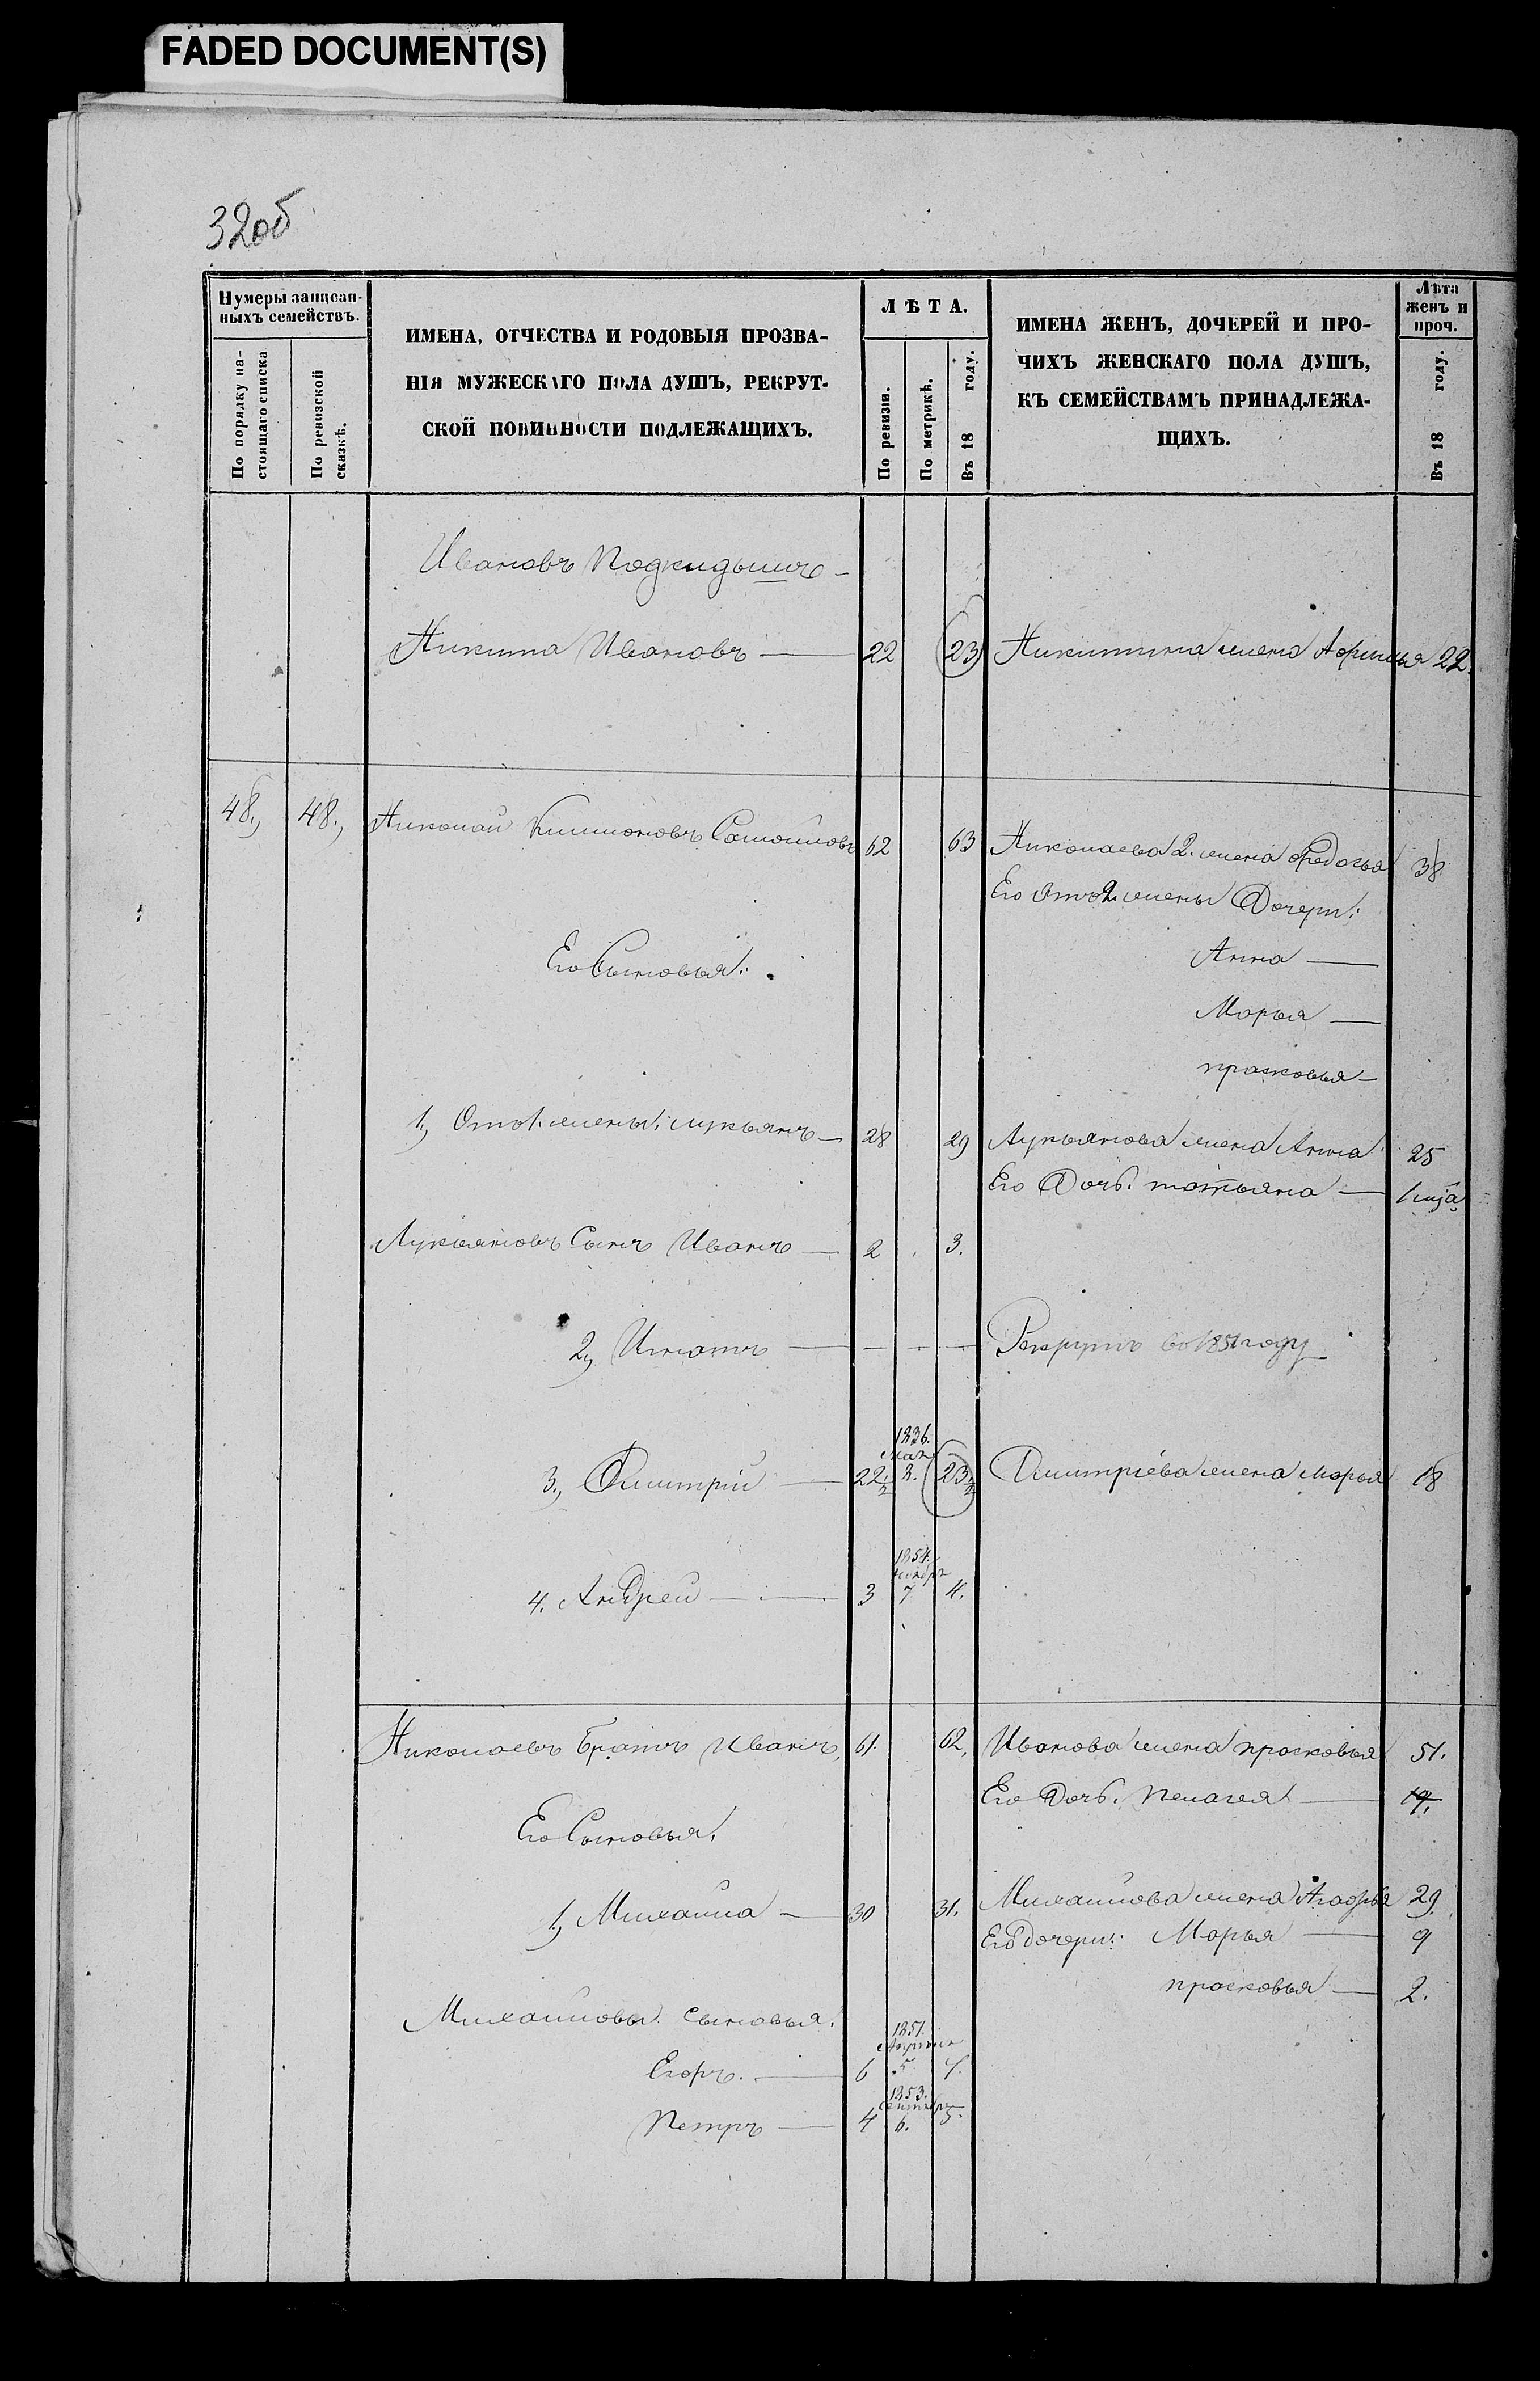 FADED DOCUMENT(S)
32об
Нумеры записан-
ныхъ семействъ.
По порядку на-
стоящаго списка
По ревизской
сказкѣ.
ИМЕНА, ОТЧЕСТВА И РОДОВЫЯ ПРОЗВА-
НІЯ МУЖЕСКАГО ПОЛА ДУШЪ, РЕКРУТ-
СКОЙ ПОВИННОСТИ ПОДЛЕЖАЩИХЪ.
ЛѢТА.
По ревизіи.
По метрикѣ.
Въ 18 году.
ИМЕНА ЖЕНЪ, ДОЧЕРЕЙ И ПРО-
ЧИХЪ ЖЕНСКАГО ПОЛА ДУШЪ,
КЪ СЕМЕЙСТВАМЪ ПРИНАДЛЕЖА-
ЩИХЪ.
Лѣта
женъ и
проч.
Въ 18 году.
Ивановъ Подкидышъ —
Никита Ивановъ — 22 23 Никитина жена 22.
48., 48., Николай Самойловъ 62 63 Николаева 2. жена Федосья 38
Его отъ 2. жены Дочери:
Его Сыновья: Анна —
Марья —
прасковья —
1., Отъ 1. жены: лукьянъ — 28 29 Лукьянова жена Анна 25
Его Дочь. татьяна —
Лукьяновъ Сынъ Иванъ — 2 3.
2., Игнатъ — Рекрутъ въ 1851 году
1836.
3., Дмитрій — 22 1/2 2. 23 1/2 Дмитріева жена марья 18
1854.
ноябр
4. Андрей — 3 7 4.
Николаевъ братъ Иванъ, 61. 62, Иванова жена прасковья 51.
Его Дочь. пелагея —
Его Сыновья,
1., Михаила — 30 31. Михайлова жена Агафья 29.
Его дочери: Марья — 9
прасковья — 2.
Михайловы сыновья.
1851.
Апреля
Егоръ. — 6 5 7.
1853.
сентябр
Петръ — 4 6. 5.